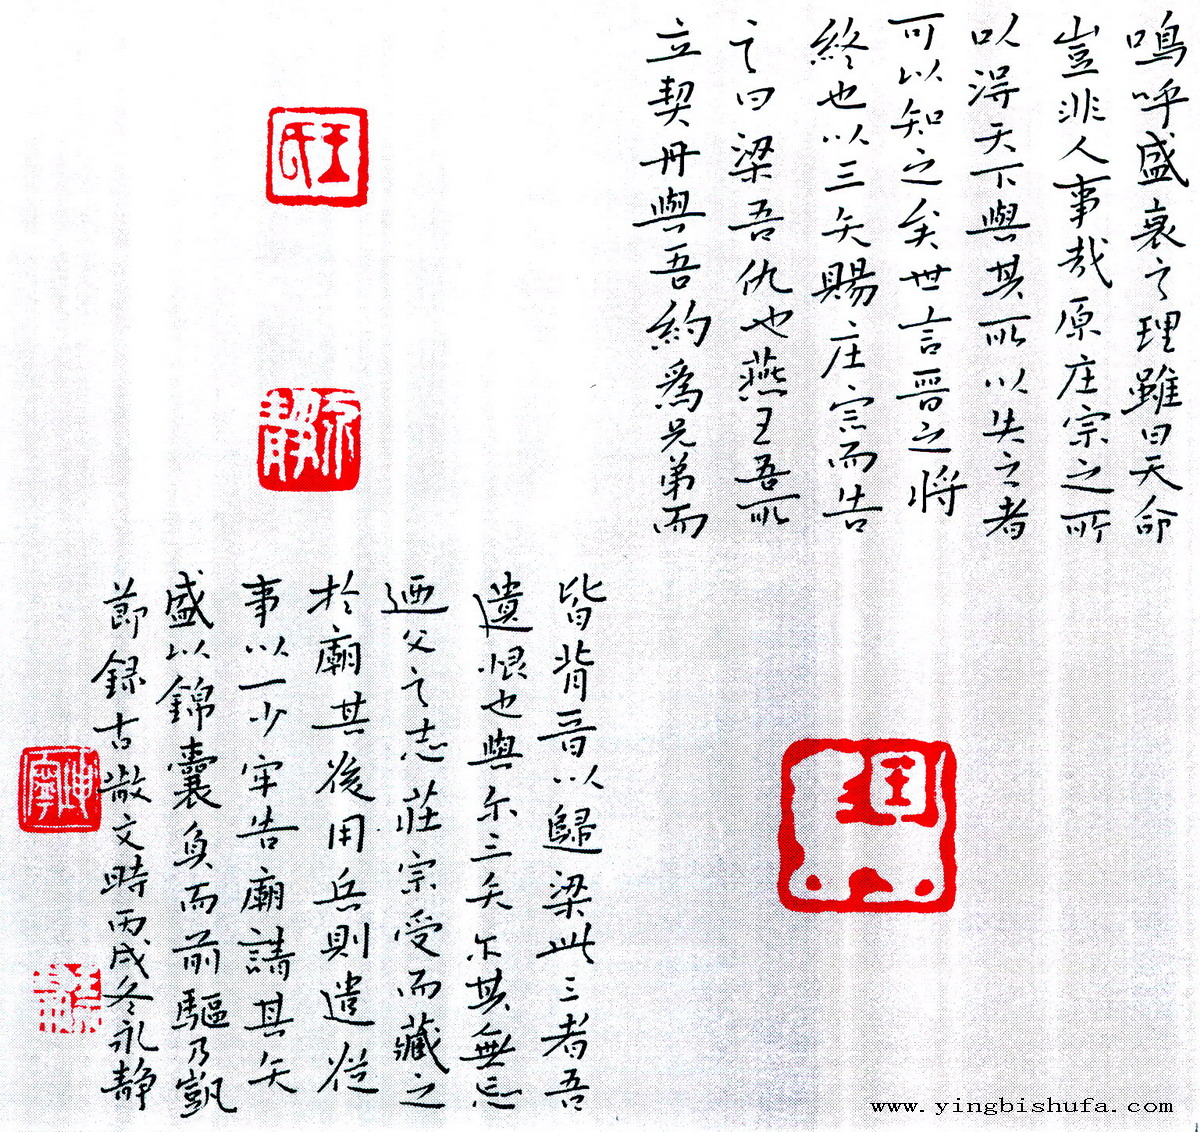 嗚呼盛衰之理雖曰天命
豈非人事哉原庄宗之所
以得天下與其所以失之者
可以知之矣世言晉之將
終也以三矢賜庄宗而告
之曰梁吾仇也燕王吾所
立契丹與吾約爲兄弟而
皆背晉以歸梁此三者吾
遺恨也與尔三矢尔其無忘
廼父之志莊宗受而藏之
於廟其後用兵則遣從
事以一少牢告廟請其矢
盛以錦囊負而前驅乃凱
節録古散文時丙戌冬永静
王氏
永靜
www.yingbishufa.com